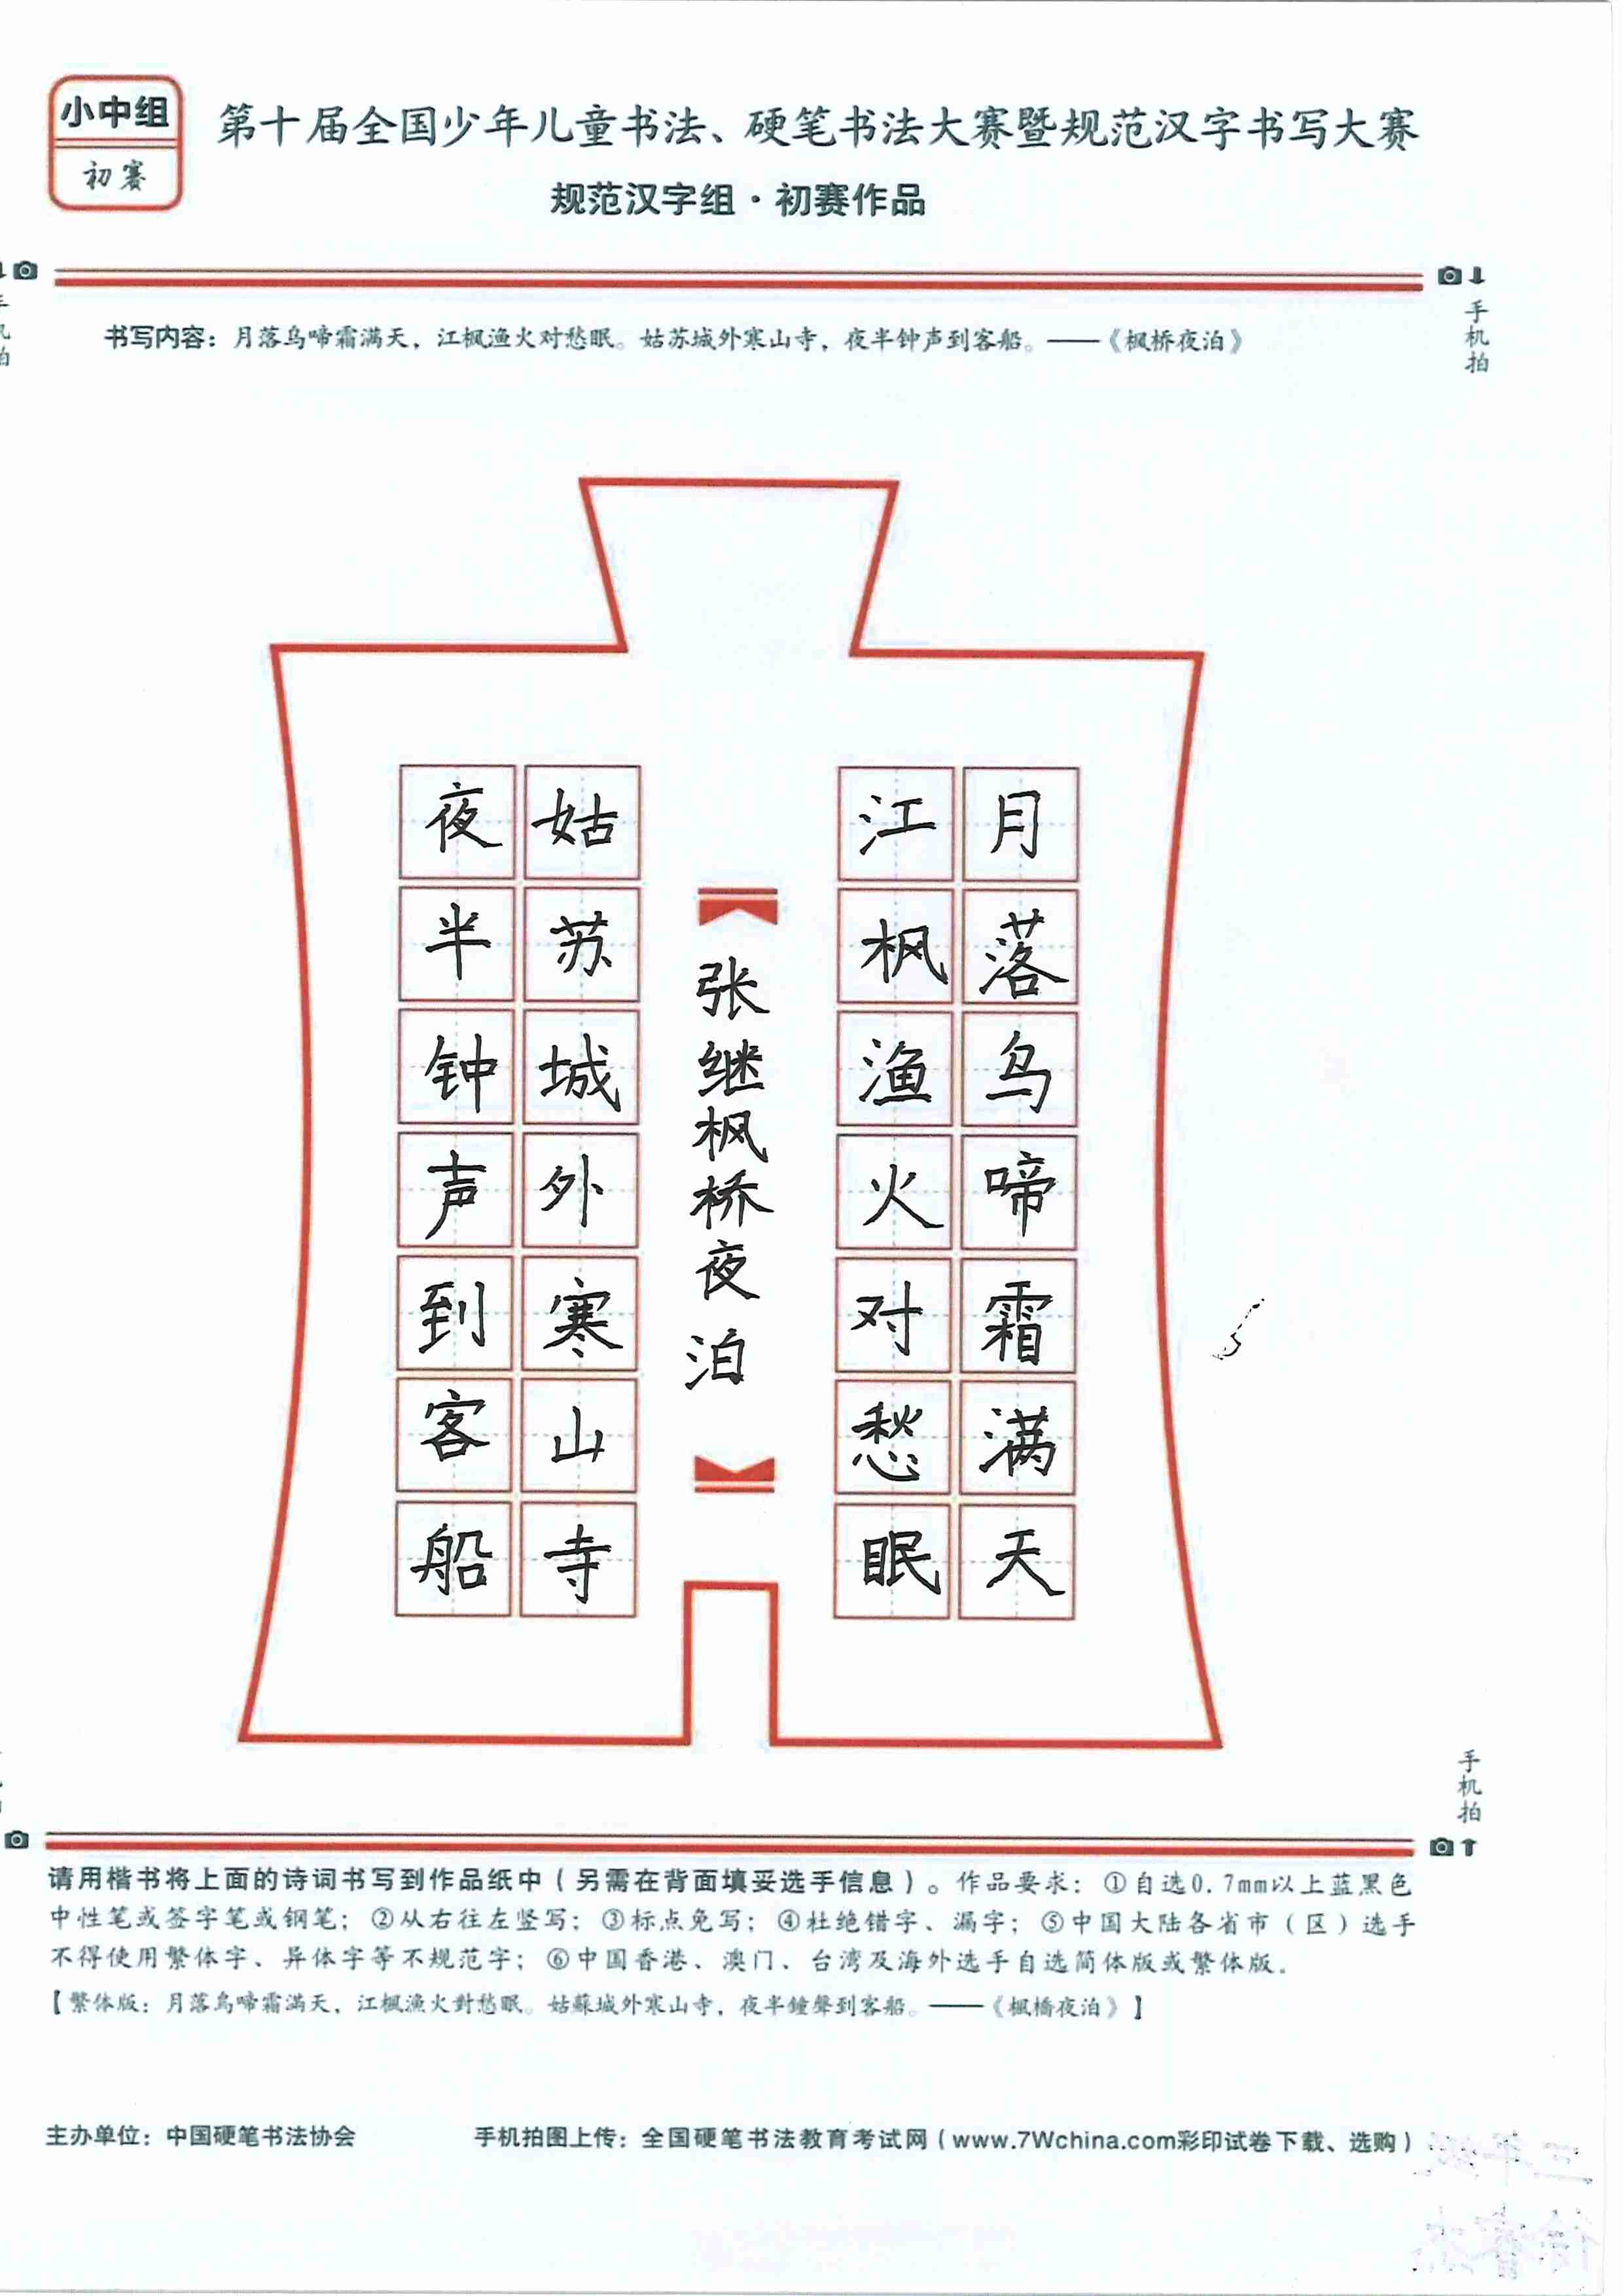 小中组
初赛
第十届全国少年儿童书法、硬笔书法大赛暨规范汉字书写大赛
规范汉字组·初赛作品
手机拍
书写内容：月落乌啼霜满天，江枫渔火对愁眠。姑苏城外寒山寺，夜半钟声到客船。——《枫桥夜泊》
月落乌啼霜满天
江枫渔火对愁眠
张继枫桥夜泊
姑苏城外寒山寺
夜半钟声到客船
手机拍
请用楷书将上面的诗词书写到作品纸中（另需在背面填妥选手信息）。作品要求：①自选0.7mm以上蓝黑色
中性笔或签字笔或钢笔；②从右往左竖写；③标点免写；④杜绝错字、漏字；⑤中国大陆各省市（区）选手
不得使用繁体字、异体字等不规范字；⑥中国香港、澳门、台湾及海外选手自选简体版或繁体版。
【繁体版：月落烏啼霜滿天，江楓漁火對愁眠。姑蘇城外寒山寺，夜半鐘聲到客船。——《楓橋夜泊》】
主办单位：中国硬笔书法协会
手机拍图上传：全国硬笔书法教育考试网（www.7Wchina.com彩印试卷下载、选购）